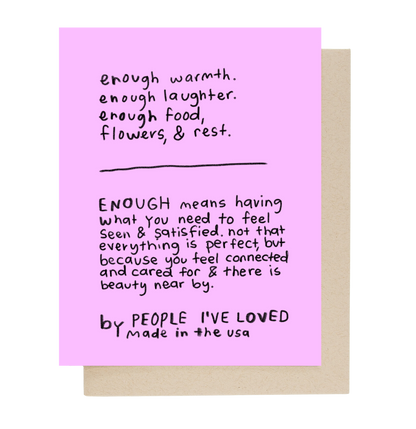 enough warmth.
enough laughter.
enough food,
flowers, & rest.
ENOUGH means having
what you need to feel
seen & satisfied. not that
everything is perfect, but
because you feel connected
and cared for & there is
beauty near by.
by PEOPLE I'VE LOVED
made in the usa